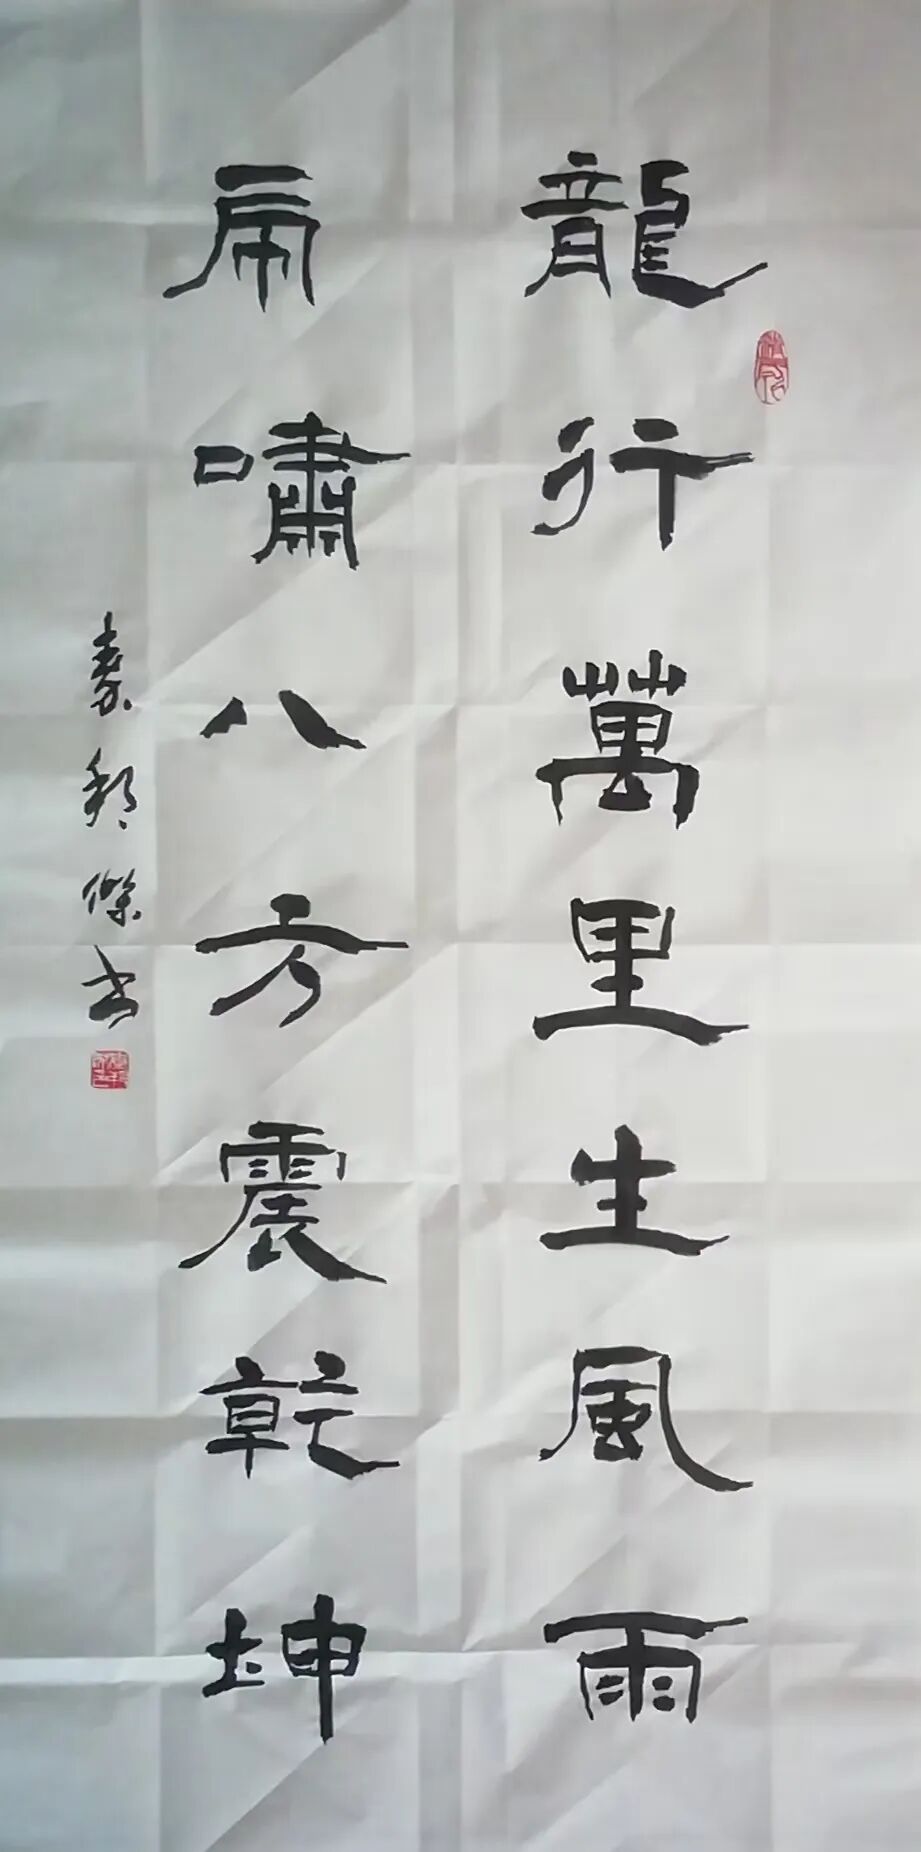 龍行萬里生風雨
虎嘯八方震乾坤
秦邦傑书